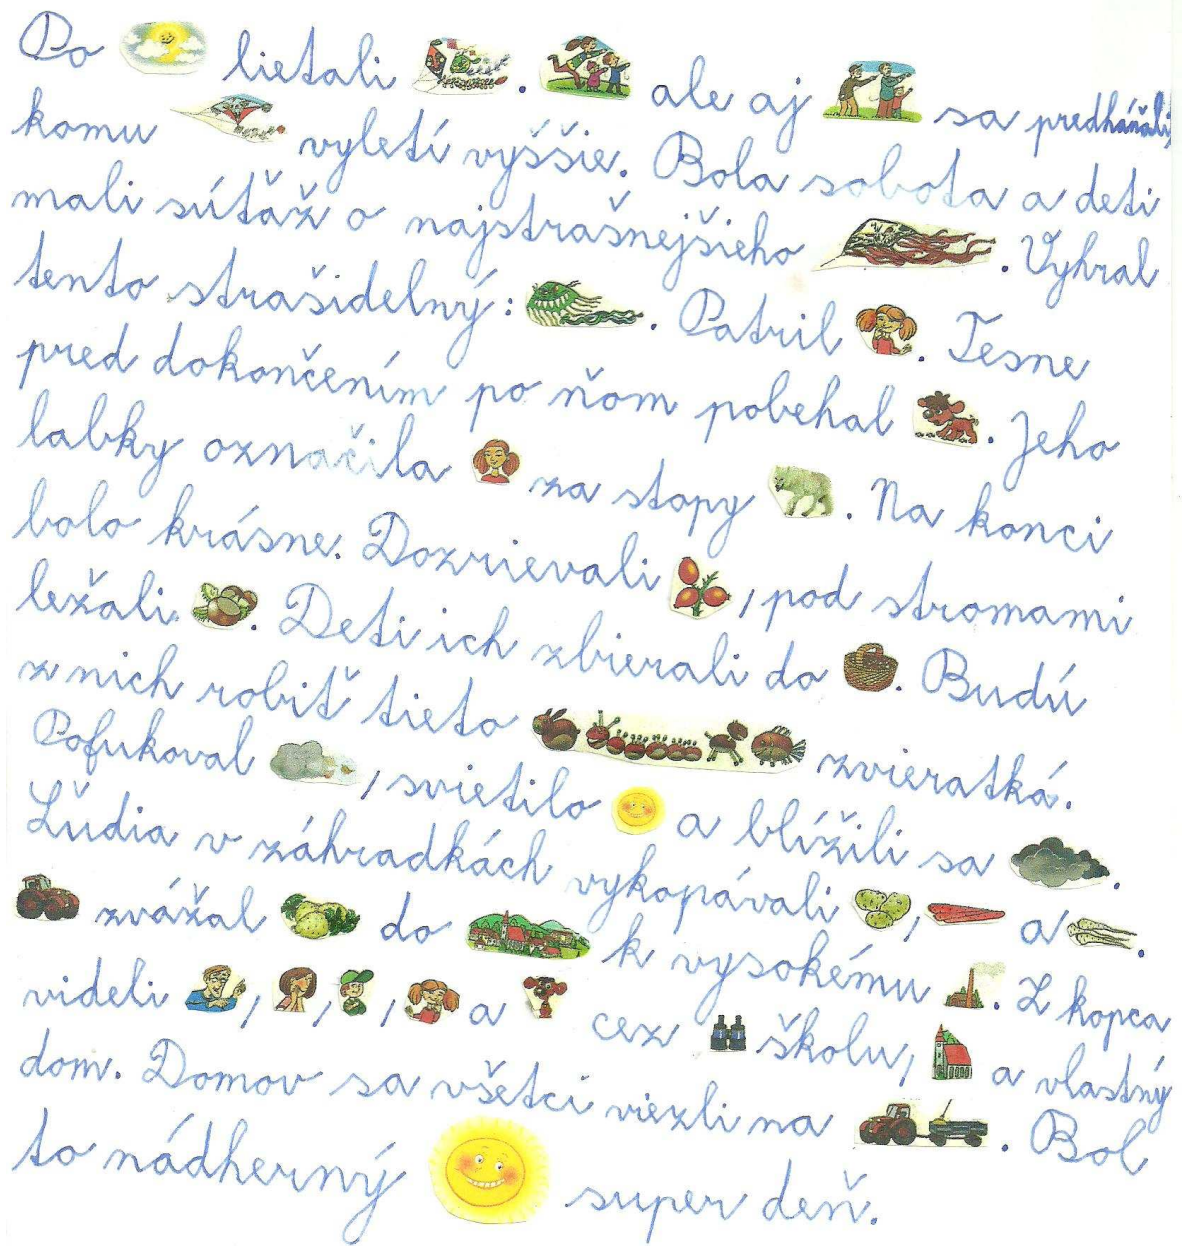 Po lietali . ale aj sa predháňali,
komu vyletí vyššie. Bola sobota a deti
mali súťaž o najstrašnejšieho . Vyhral
tento strašidelný: . Patril . Tesne
pred dokončením po ňom pobehal . Jeho
labky označila za stopy . Na konci
bolo krásne. Dozrievali , pod stromami
ležali . Deti ich zbierali do . Budú
z nich robiť tieto zvieratká.
Pofukoval , svietilo a blížili sa .
Ľudia v záhradkách vykopávali , a .
zvážal do k vysokému . Z kopca
videli , , , a cez školu, a vlastný
dom. Domov sa všetci viezli na . Bol
to nádherný super deň.